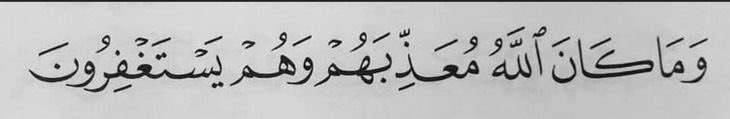 وَمَا كَانَ ٱللَّهُ مُعَذِّبَهُمْ وَهُمْ يَسْتَغْفِرُونَ